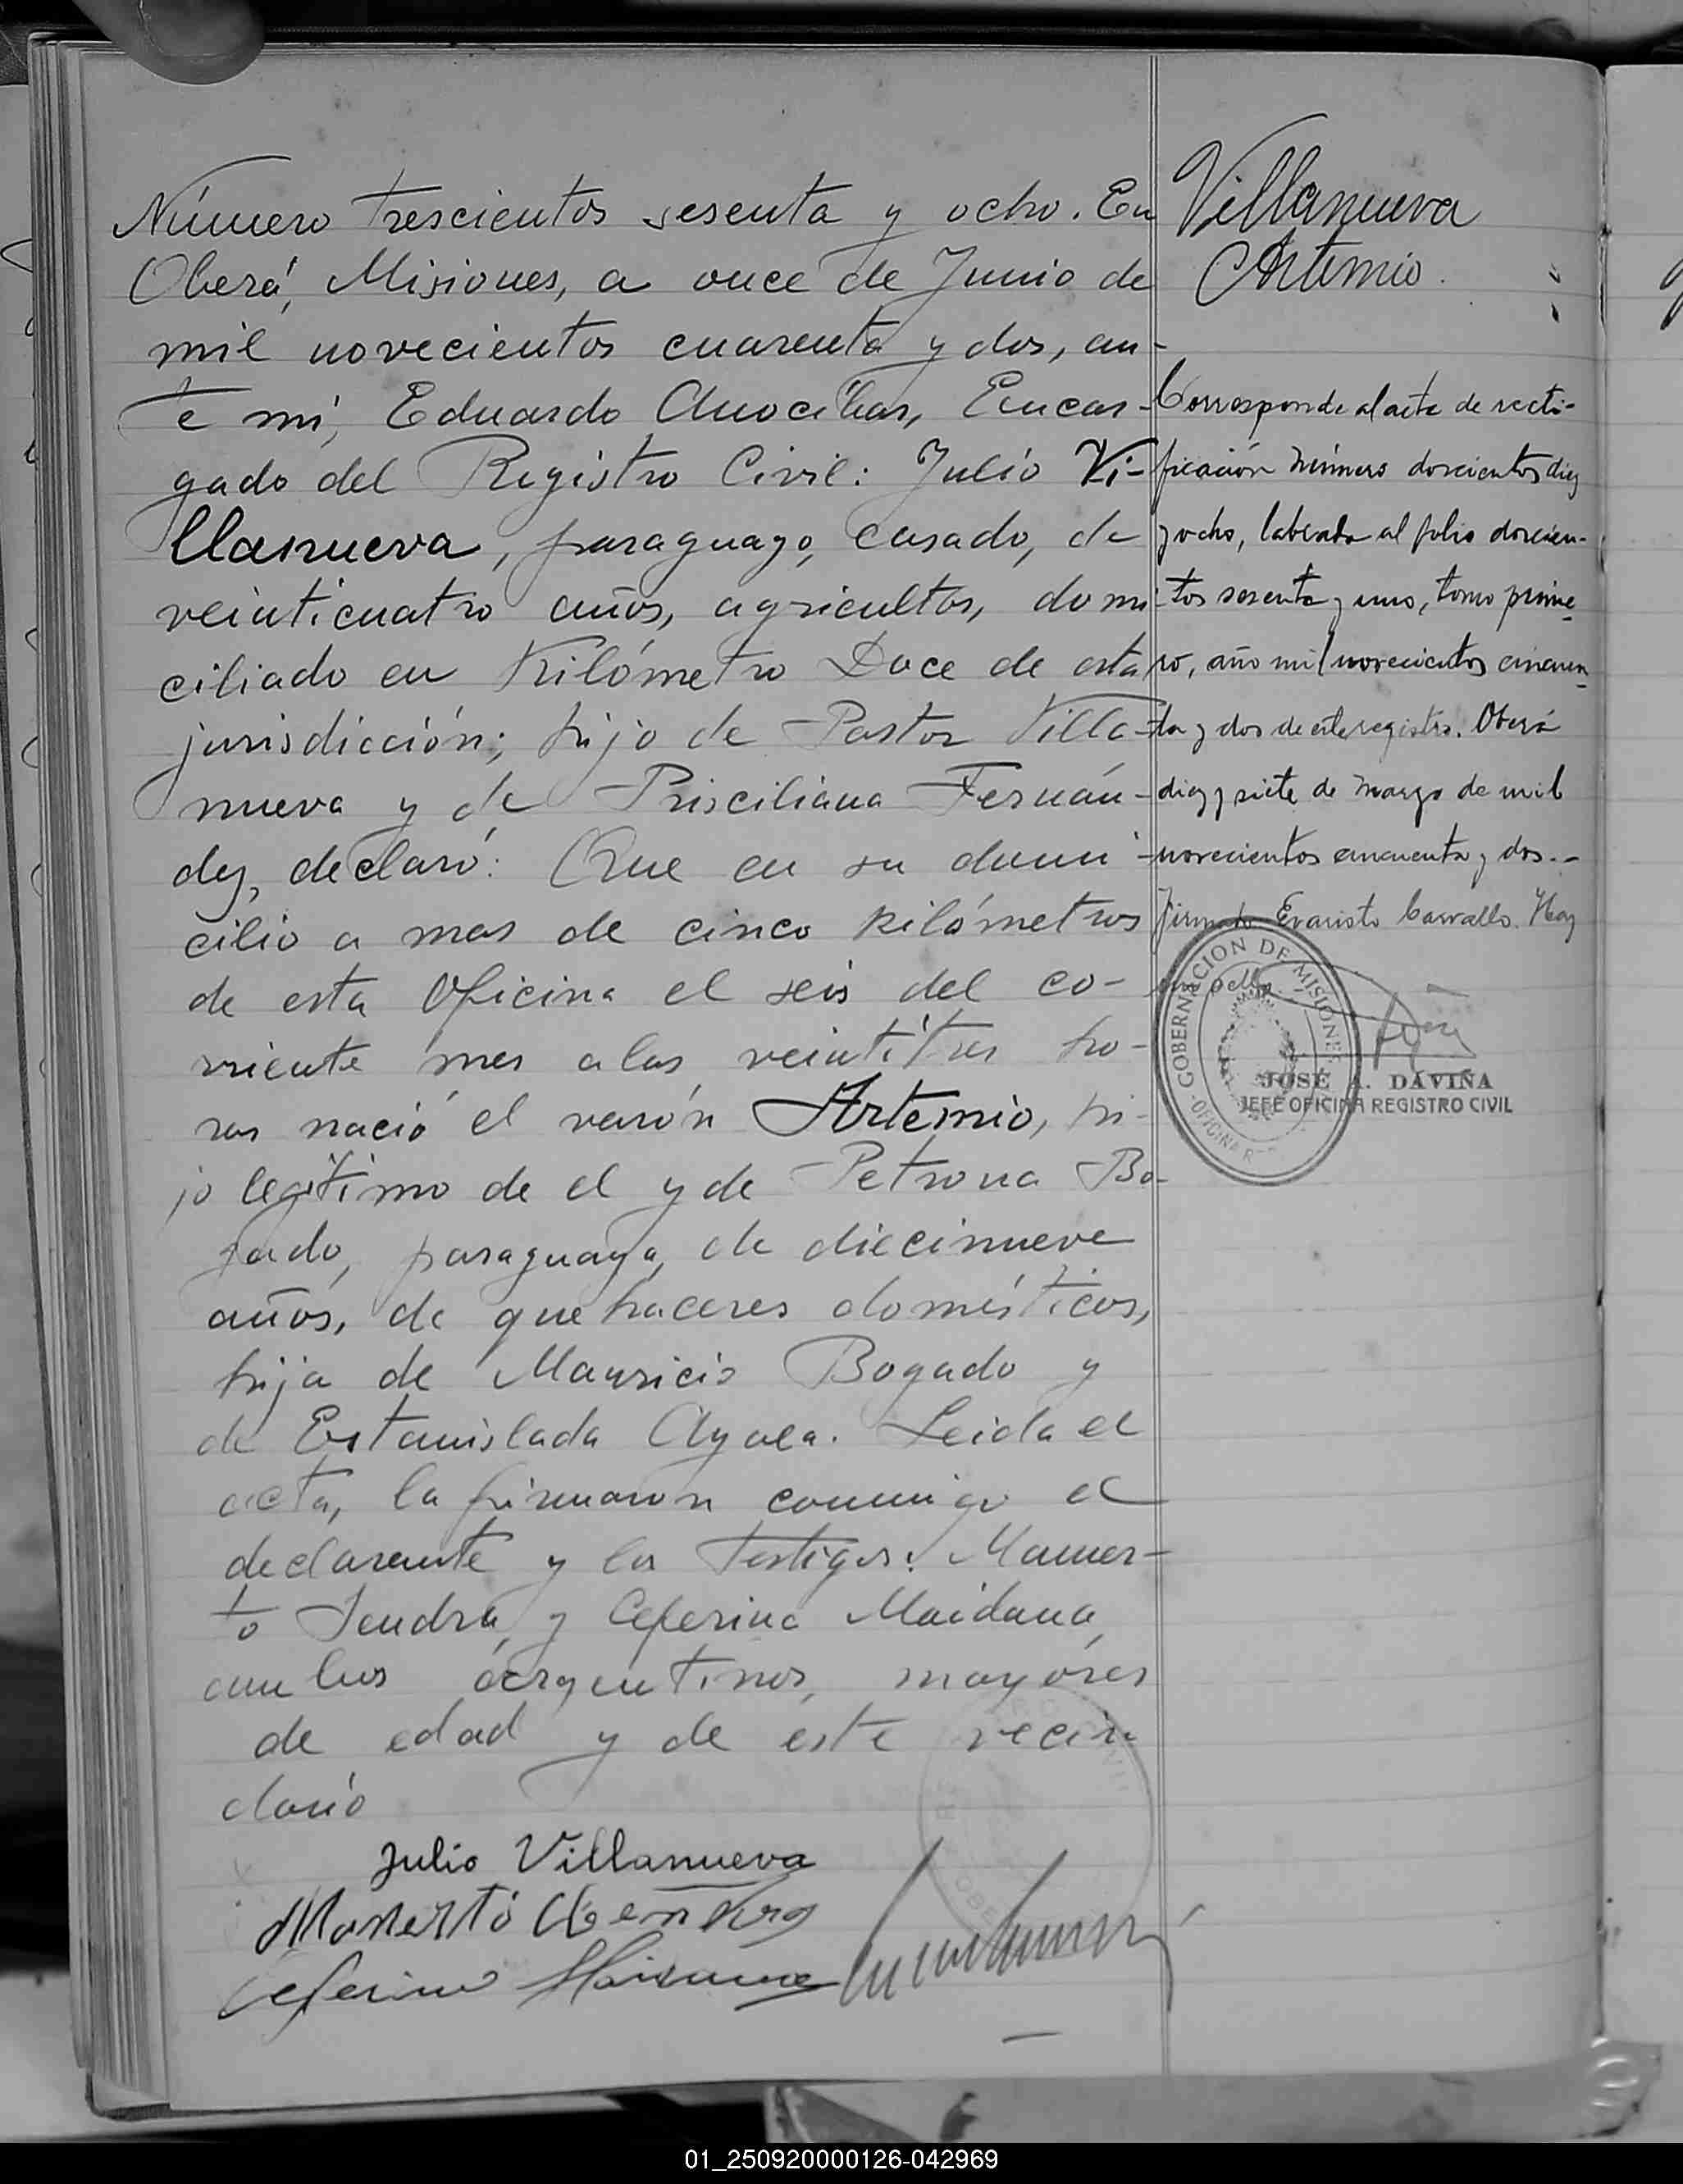 Número trescientos sesenta y ocho. En
Oberá, Misiones, a once de Junio de
mil novecientos cuarenta y dos, an-
te mí, Eduardo Anocíbar, Encar-
gado del Registro Civil: Julio Vi-
llanueva, paraguayo, casado, de
veinticuatro años, agricultor, domi-
ciliado en Kilómetro Doce de esta
jurisdicción; hijo de Pastor Villa-
nueva y de Prisciliana Fernán-
dez, declaró: Que en su domi-
cilio a mas de cinco kilómetros
de esta Oficina el seis del co-
rriente mes a las veintitres ho-
ras nació el varón Artemio, hi-
jo legítimo de el y de Petrona Bo-
gado, paraguaya, de diecinueve
años, de quehaceres domésticos,
hija de Mauricio Bogado y
de Estanislada Ayala. Leida el
acta, la firmaron conmigo el
declarante y los testigos: Mamer-
to y Ceferino Maidana,
ambos argentinos, mayores
de edad y de este vecin
dario
Julio Villanueva
Mamerto
Ceferino Maidana
Villanueva
Artemio.
Corresponde al acta de recti-
ficación número doscientos diez
y ocho, labrada al folio doscien-
tos sesenta y uno, tomo prime-
ro, año mil novecientos cincuen-
ta y dos de este registro. Oberá
diez y siete de marzo de mil
novecientos cincuenta y dos.-
Firmado Evaristo Carvallo. Hay
un sello.
GOBERNACION DE MISIONES
JOSE A. DAVIÑA
JEFE OFICINA REGISTRO CIVIL
01_250920000126-042969